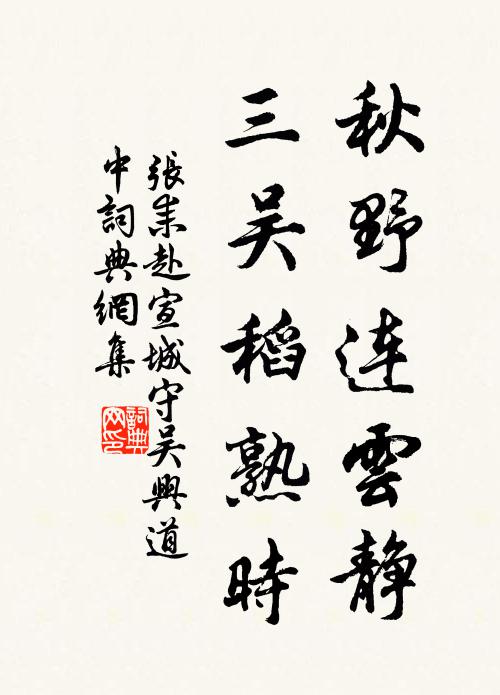 秋野連雲静
三吴稻熟時
張耒赴宣城守吴興道
中詞典網集
詞典
网印